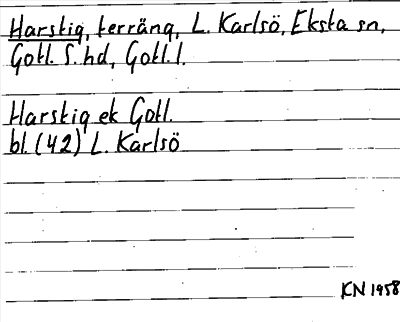 Harstig, terräng, L. Karlsö, Eksta sn,
Gotl. S. hd, Gotl. l.
Harstig ek Gotl.
bl. (42) L. Karlsö
KN 1958